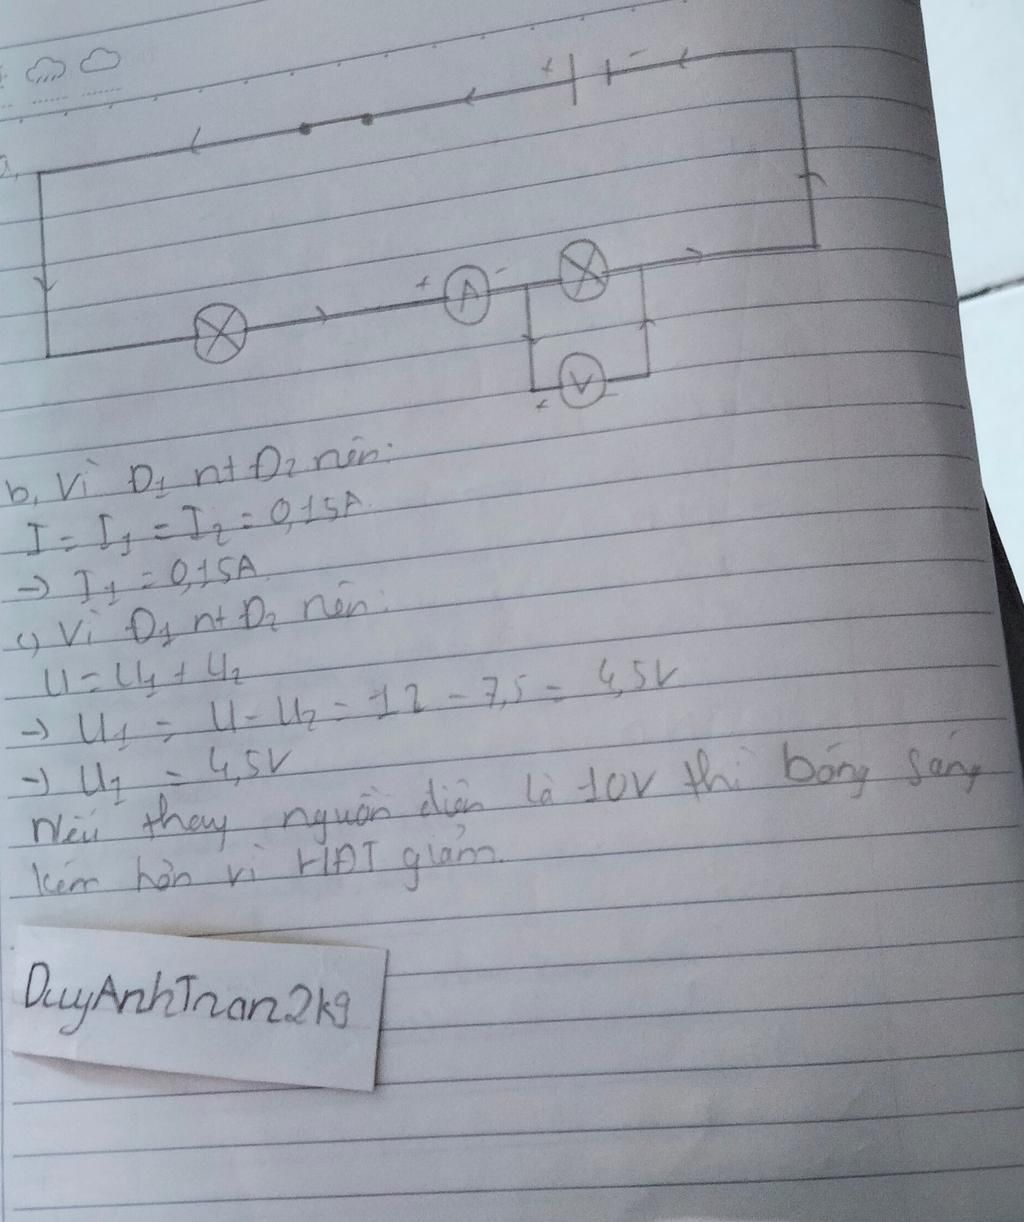 a,
+ -
+ A -
V
+ -
b, Vì Đ1 nt Đ2 nên:
I = I1 = I2 = 0,15A.
→ I1 = 0,15A
c, Vì Đ1 nt Đ2 nên:
U = U1 + U2
→ U1 = U - U2 = 12 - 7,5 = 4,5V
→ U1 = 4,5V
Nếu thay nguồn điện là 10V thì bóng sáng
kém hơn vì HĐT giảm.
DuyAnhTran2kg